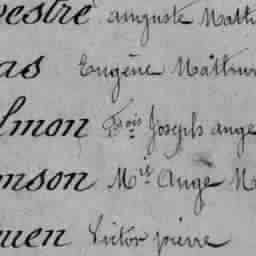 vestre auguste Math
as Eugène Mathur
lmon Frois Joseph ange
mson Mie Ange M
uen Victor pierre